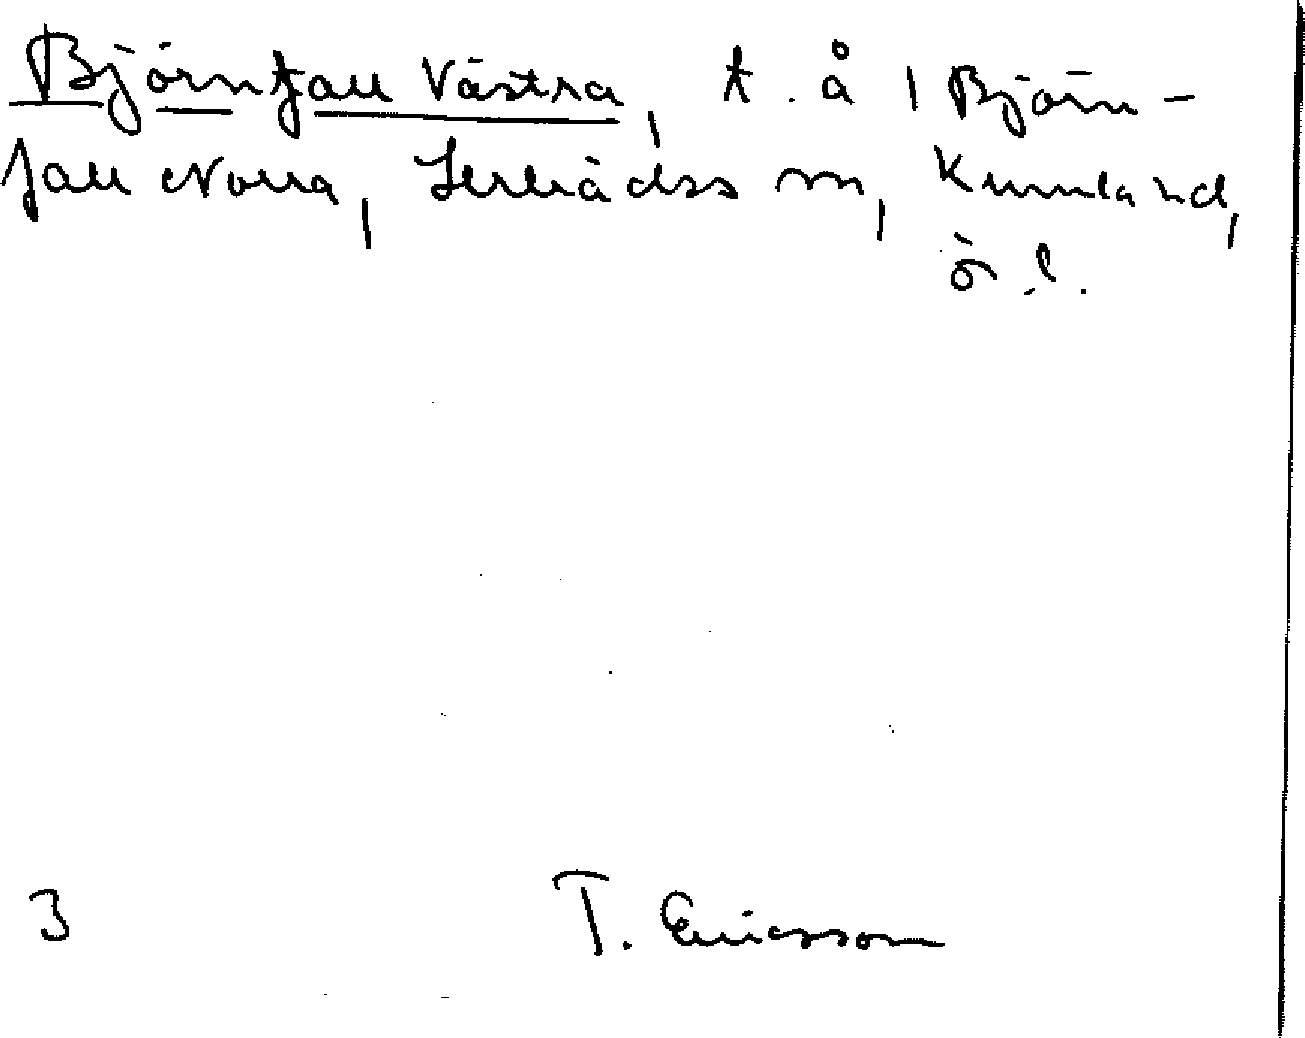 Björnfall Västra, t. å 1 Björn-
fall Norra, Lerbäcks sn, Kumla hd,
ö.l.
3 T. Ericsson